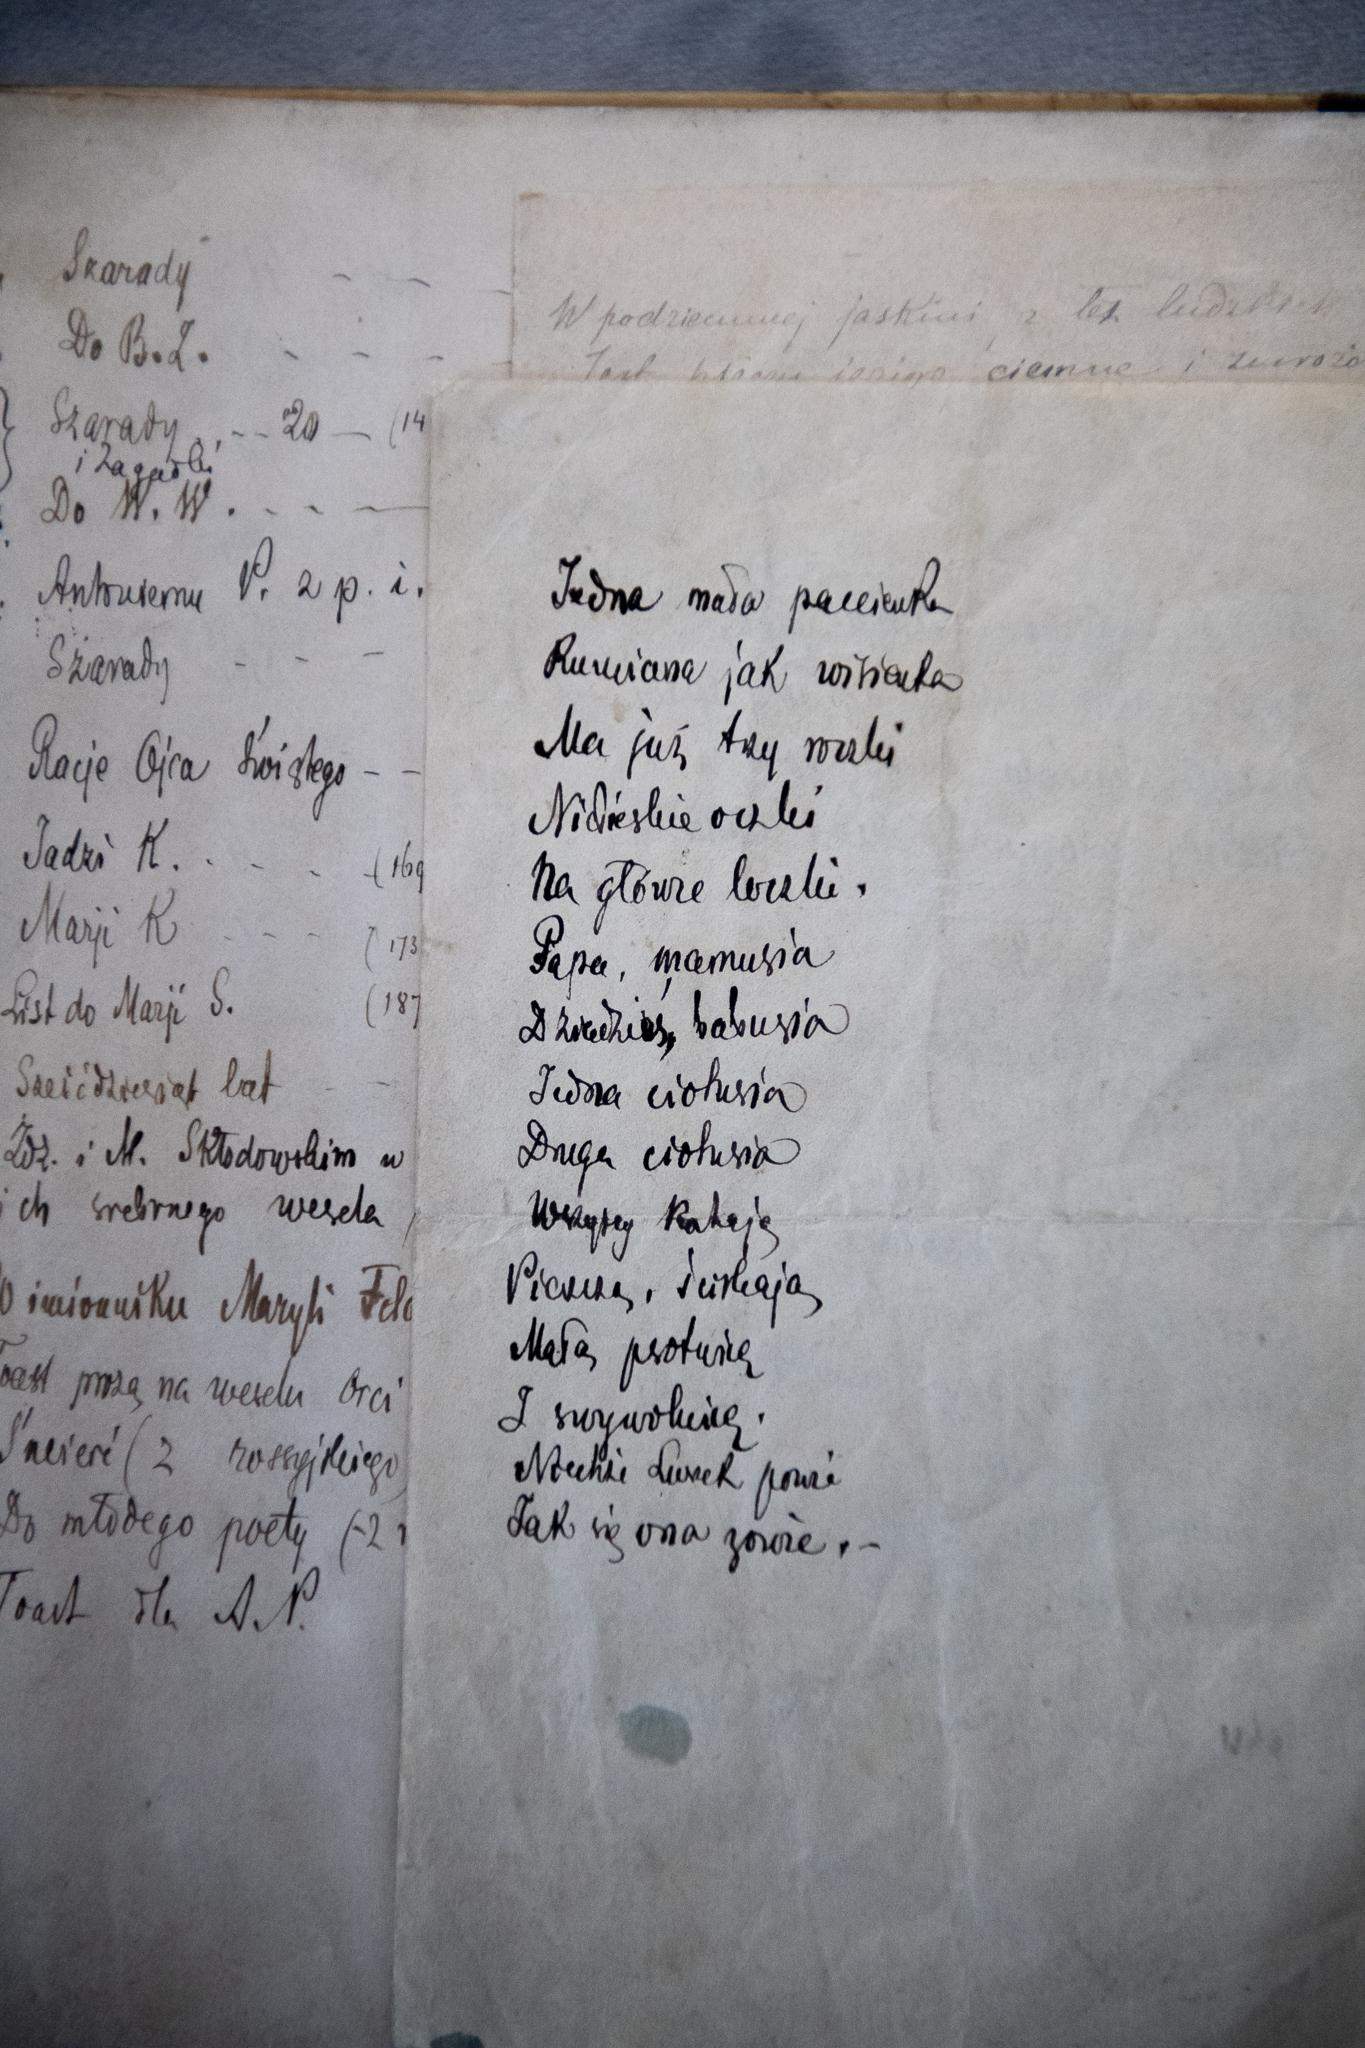 Szarady
Do B. Z.
Szarady 20 (14
i Zagadki
Do W. W.
Antoniemu P. z p. i.
Szarady
Racje Ojca Świętego
Jadzi K. (169
Marji K (173
List do Marji S. (187
Sześćdziesiąt lat
Zdz. i M. Skłodowskim w
ich srebrnego wesela
O imionniku Maryli
Toast prozą na weselu
Śmierć (z rossyjskiego
Do młodego poety (z
Toast dla A. P.
W podziemnej jaskini, z łez
ciemne i
Jedna mała panienka
Rumiana jak wisienka
Ma już trzy roczki
Niebieskie oczki
Na główce loczki.
Papa, mamusia
Dziadziuś, babusia
Jedna ciotusia
Druga ciotusia
Wszyscy kochają
Pieszczą, ściskają
Małą psotnicę
I swywolnicę.
Niechże Lusiek powie
Jak się ona zowie. –